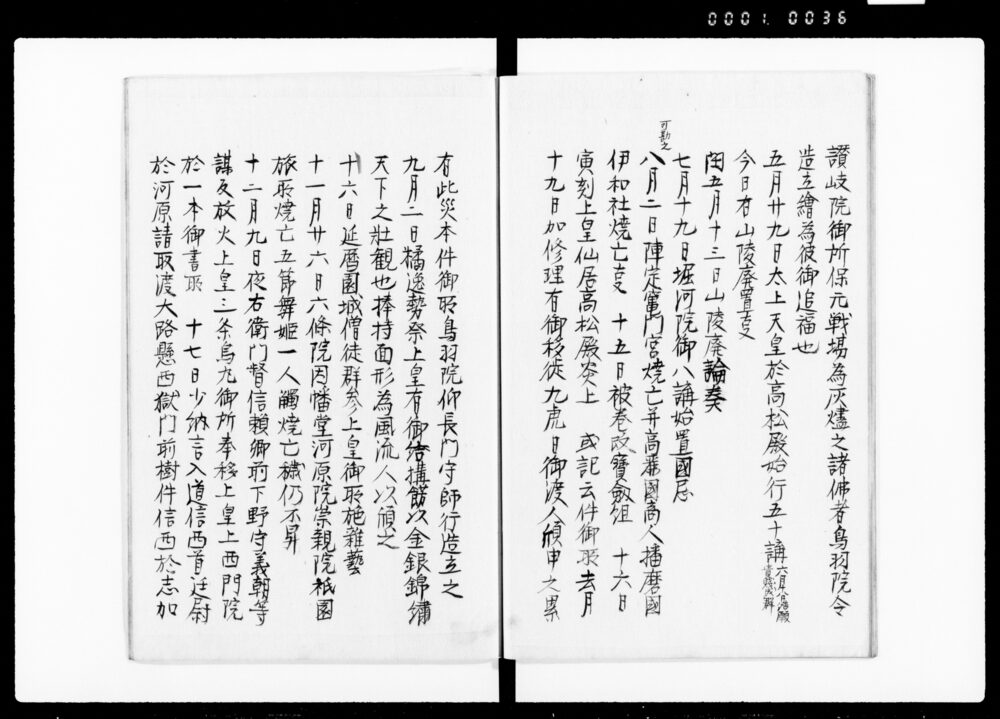 0001. 0036
讃岐院御所保元戦場為灰燼之諸佛者鳥羽院令
造立繪為彼御追福也
五月廿九日太上天皇於高松殿始行五十講
今日有山陵廃置事
閏五月十三日山陵廃論奏
七月十九日堀河院御八講始置國忌
可勘之
八月二日陣定竃門宮焼亡并高麗國商人播磨國
伊和社焼亡事 十五日被卷改寶劔組 十六日
寅刻上皇仙居高松殿炎上 或記云件御所去月
十九日加修理有御移徙九虎日御渡人傾申之果
有此災本件御所鳥羽院仰長門守師行造立之
九月二日橘逸勢祭上皇有御結構餝以金銀錦繡
天下之壮観也捧持面形為風流人以傾之
十六日延暦園城僧徒群参上皇御所施雑藝
十一月廿六日六條院因幡堂河原院崇親院祇園
旅所焼亡五節舞姫一人觸焼亡穢仍不昇
十二月九日夜右衛門督信頼卿前下野守義朝等
謀反放火上皇三条烏丸御所奉移上皇上西門院
於一本御書所 十七日少納言入道信西首廷尉
於河原請取渡大路懸西獄門前樹件信西於志加